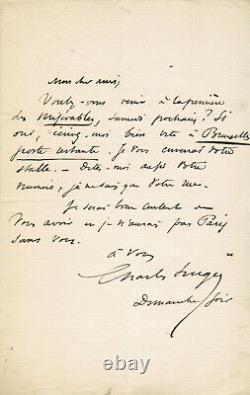 Mon cher ami,
Voulez-vous venir à la première
des Misérables, samedi prochain ? Si
oui, écrivez-moi bien vite à Bruxelles
poste restante. Je vous enverrai votre
stalle. - Dites-moi aussi votre
numéro, je ne sais que votre rue.
Je serai bien content de
vous avoir et je n'aurai pas Paris
sans vous.
à vous
Charles Hugo
Dimanche soir
© th